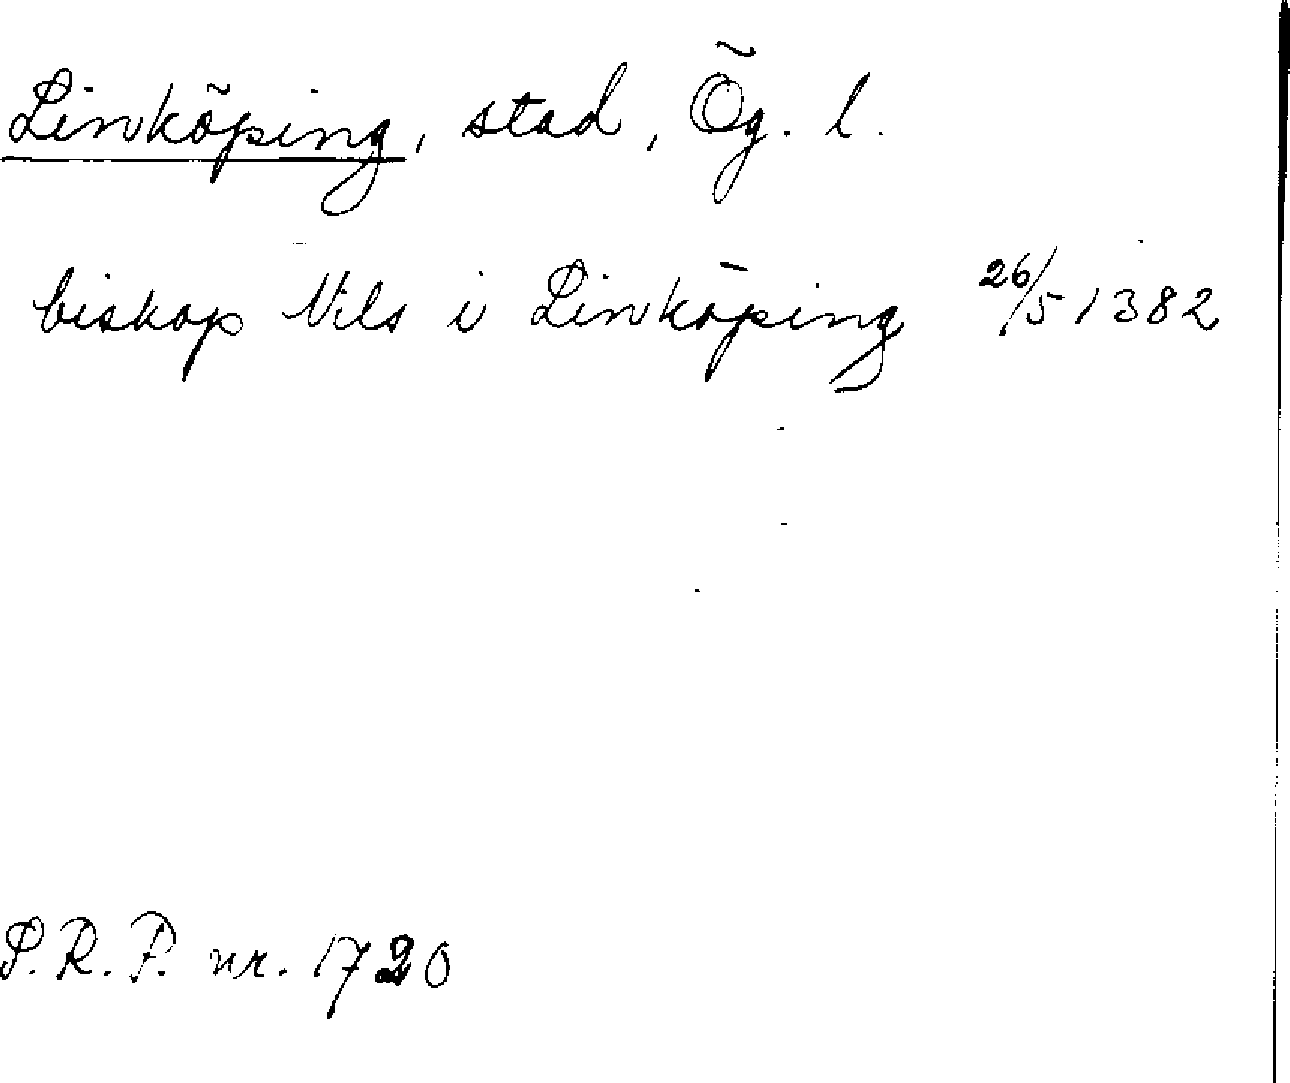 Linköping, stad, Ög. l.
biskop Nils i Linköping 26/5 1382
S.R.P. nr. 1720